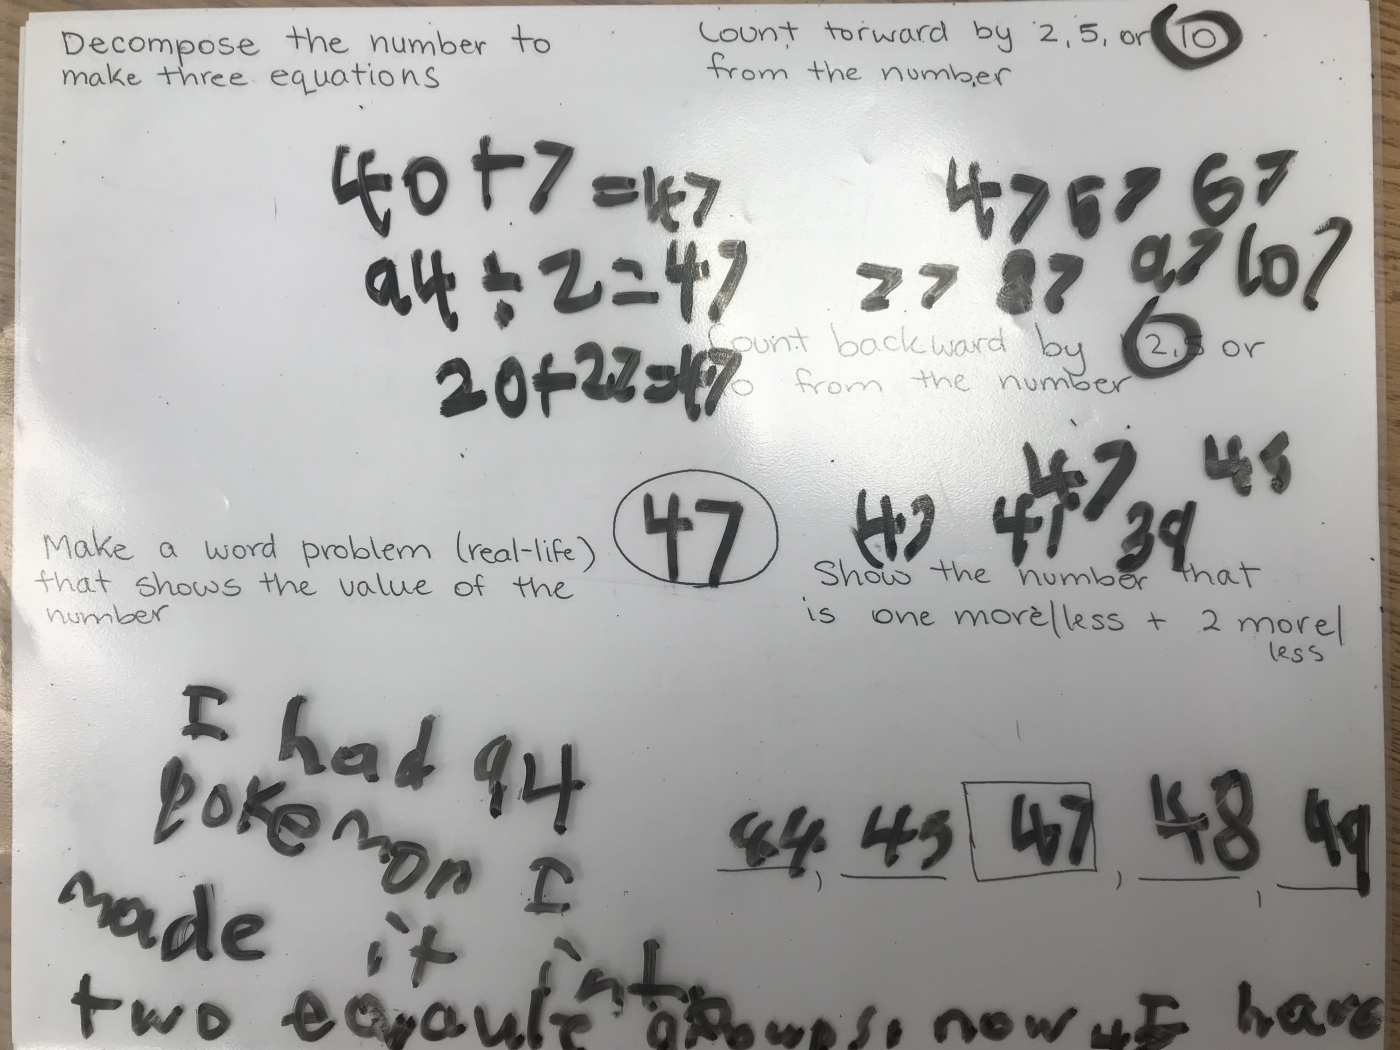 Decompose the number to
make three equations
40+7=47
94÷2=47
20+27=47
Count forward by 2, 5, or 10
from the number
47 57 67
77 87 97 107
Count backward by 2, 5 or
10 from the number
47 45
43 41 39
47
Make a word problem (real-life)
that shows the value of the
number
I had 94
pokemon I
made it into
two equaule groups. now I have
Show the number that
is one more/less + 2 more/
less
44, 45 47, 48, 49